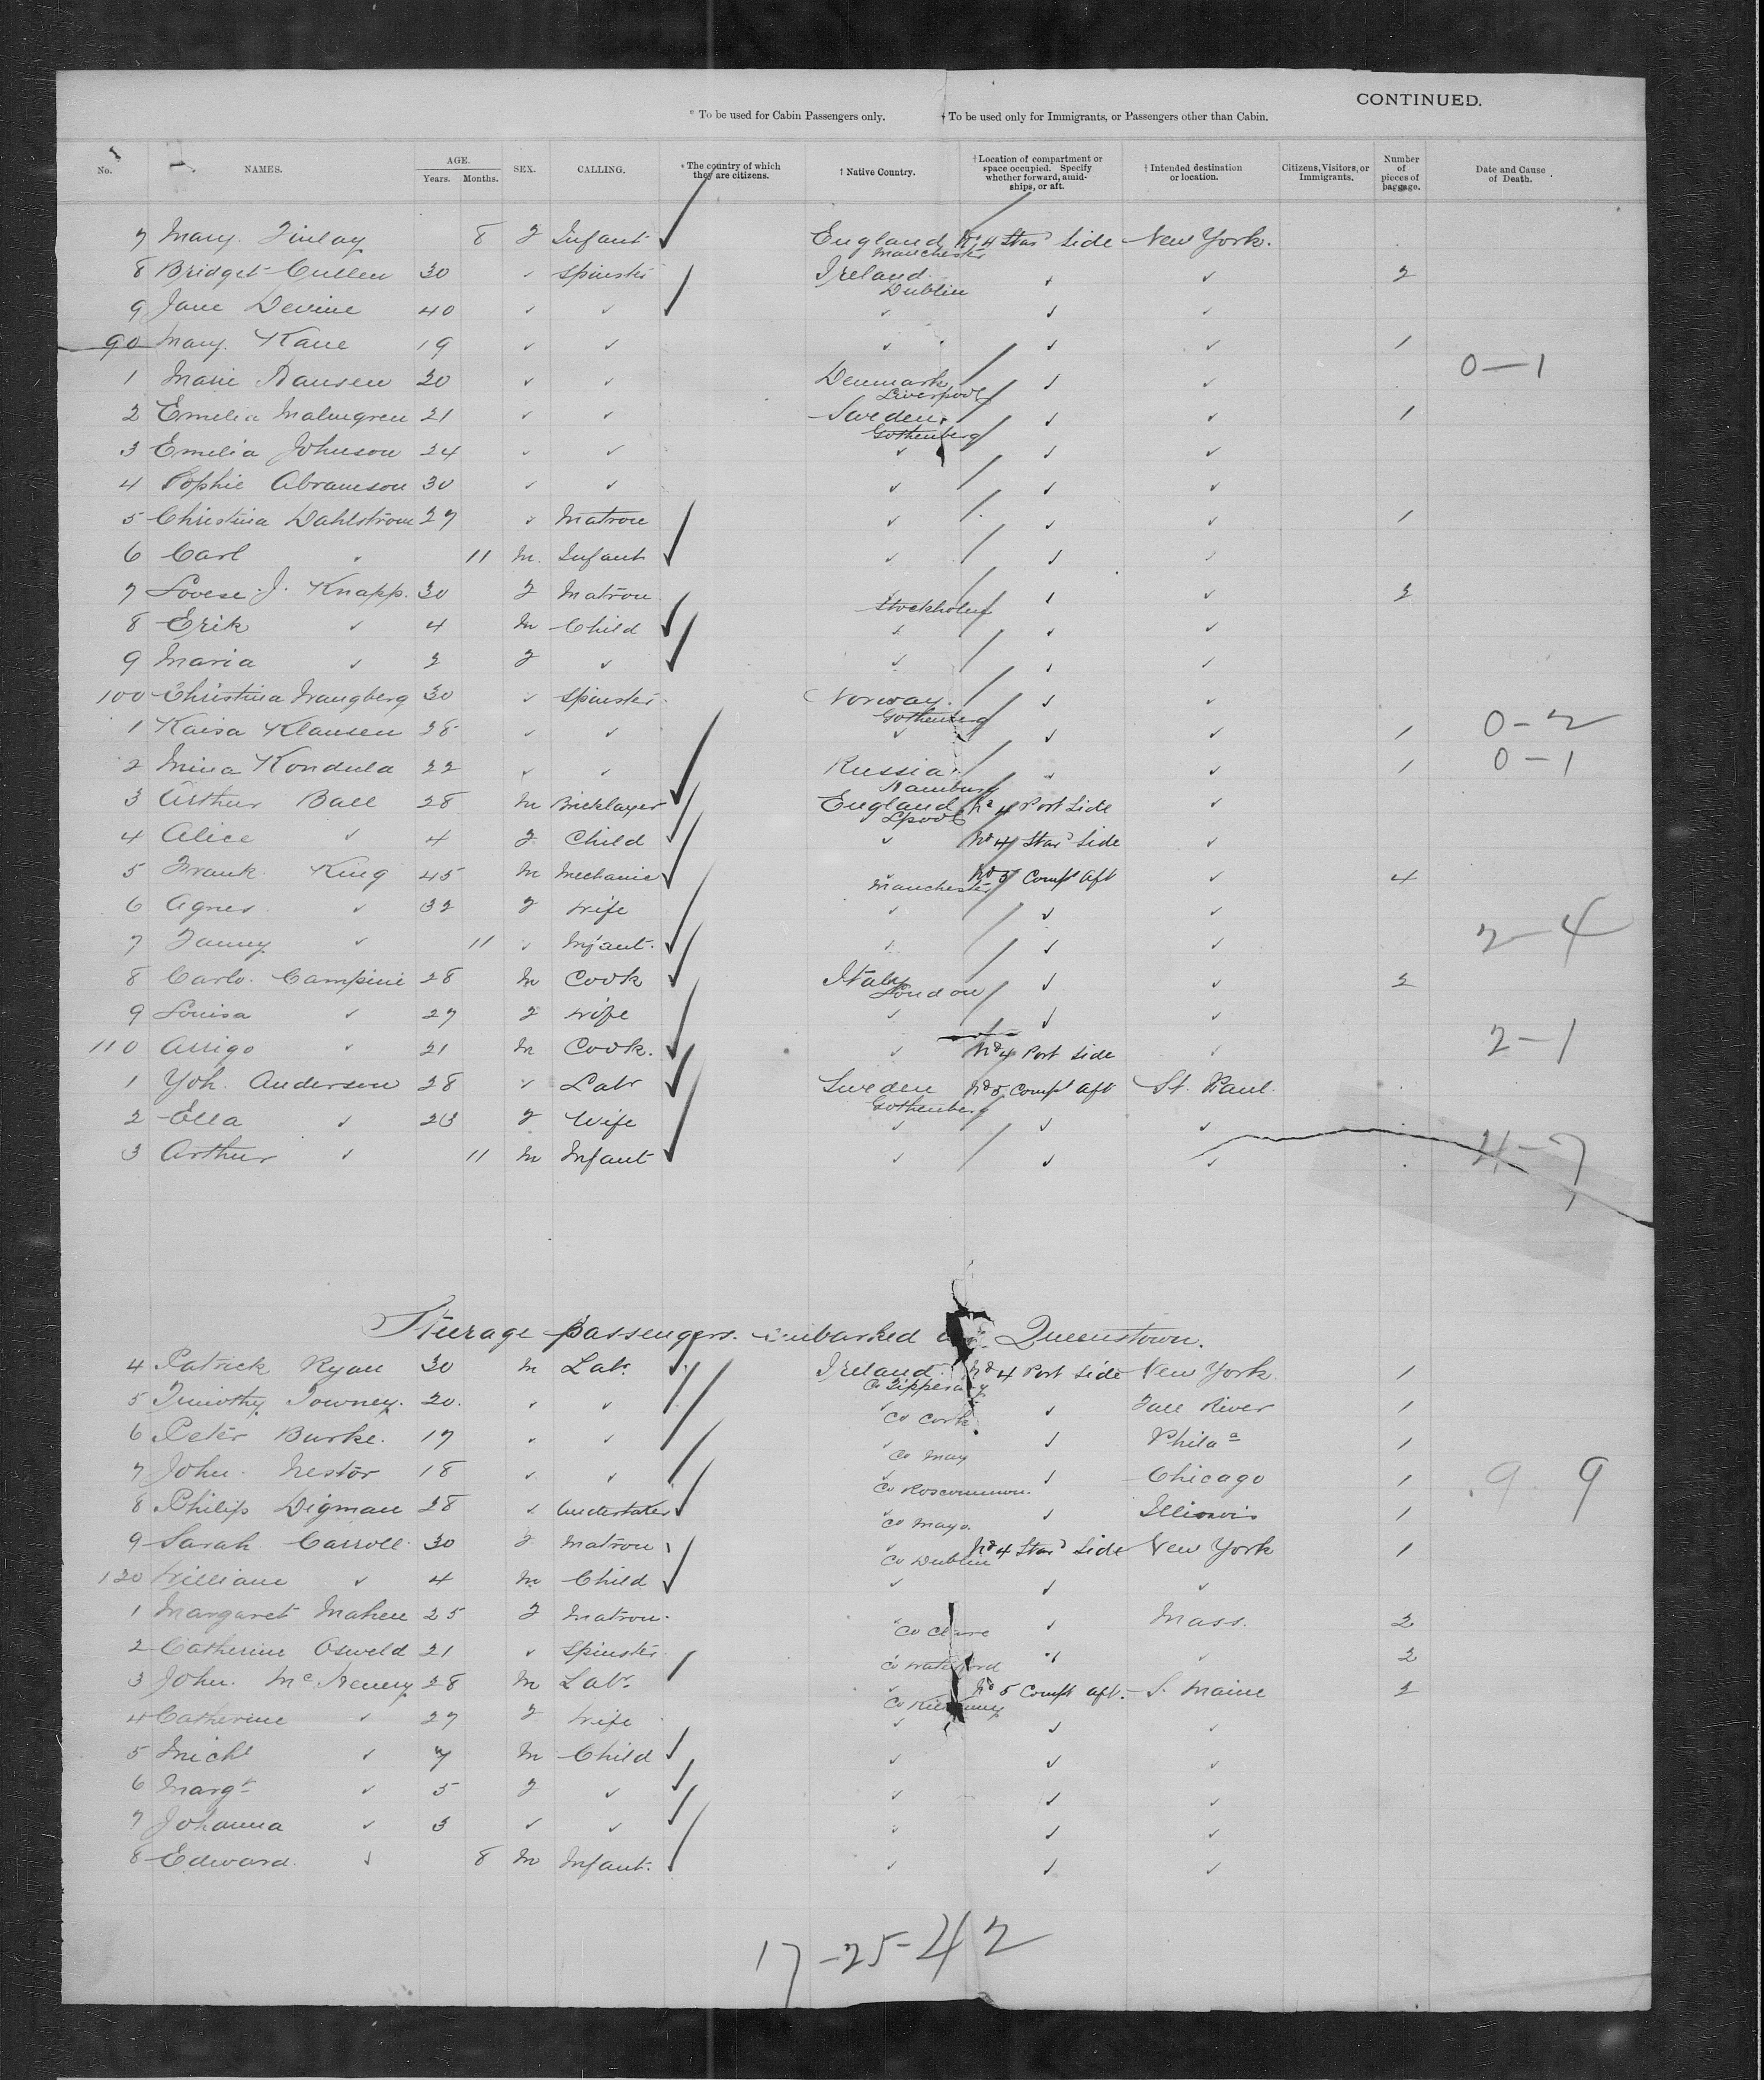 CONTINUED.
* To be used for Cabin Passengers only. † To be used only for Immigrants, or Passengers other than Cabin.
No. NAMES. AGE. Years. Months. SEX. CALLING. * The country of which they are citizens. † Native Country. † Location of compartment or space occupied. Specify whether forward, amidships, or aft. † Intended destination or location. Citizens, Visitors, or Immigrants. Number of pieces of baggage. Date and Cause of Death.
7 Mary Finlay 8 F Infant England Manchester No 4 Star'd Side New York.
8 Bridget Cullen 30 ✓ Spinster Ireland Dublin ✓ ✓ 2
9 Jane Devine 40 ✓ ✓ ✓ ✓ ✓
90 Mary Kane 19 ✓ ✓ ✓ ✓ ✓ 1
1 Marie Hansen 20 ✓ ✓ Denmark Liverpool ✓ ✓ 0-1
2 Emelia Malmgren 21 ✓ ✓ Sweden Gothenberg ✓ ✓ 1
3 Emelia Johnson 24 ✓ ✓ ✓ ✓ ✓
4 Sophie Abramson 30 ✓ ✓ ✓ ✓ ✓
5 Christina Dahlstrom 27 ✓ Matron ✓ ✓ ✓ 1
6 Carl ✓ 11 M Infant ✓ ✓ ✓
7 Lovese J. Knapp. 30 F Matron Stockholm ✓ ✓ 2
8 Erik ✓ 4 M Child ✓ ✓ ✓
9 Maria ✓ 2 F ✓ ✓ ✓ ✓
100 Christina 30 ✓ Spinster Norway Gothenberg ✓ ✓
1 Kaisa Klausen 28 ✓ ✓ ✓ ✓ ✓ 1 0-2
2 Mina Kondula 22 ✓ ✓ Russia Hamburg ✓ ✓ 1 0-1
3 Arthur Ball 28 M Bricklayer England Lpool No 4 Port Side ✓
4 Alice ✓ 4 F Child ✓ No 4 Star'd Side ✓
5 Frank King 45 M Mechanic Manchester No 5 Compt Aft ✓ 4
6 Agnes ✓ 32 F Wife ✓ ✓ ✓
7 Fanny ✓ 11 ✓ Infant. ✓ ✓ ✓ 2-4
8 Carlo Campini 28 M Cook Italy London ✓ ✓ 2
9 Louisa ✓ 27 F Wife ✓ ✓ ✓
110 Arrigo ✓ 21 M Cook. ✓ No 4 Port Side ✓ 2-1
1 Joh. Anderson 28 ✓ Labr Sweden Gothenberg No 5 Compt Aft St. Paul.
2 Ella ✓ 23 F Wife ✓ ✓ ✓
3 Arthur ✓ 11 M Infant ✓ ✓ ✓ 4-7
Steerage passengers embarked Queenstown.
4 Patrick Ryan 30 M Labr. Ireland Co Tipperary No 4 Port Side New York. 1
5 Timothy Towney. 20. ✓ ✓ Co Cork ✓ Fall River 1
6 Peter Burke. 17 ✓ ✓ Co May ✓ Phila 1
7 John Nestor 18 ✓ ✓ Co Roscommon. ✓ Chicago 1 9 9
8 Philip Digman 28 ✓ Undertaker Co Mayo. ✓ Illinois 1
9 Sarah Carroll 30 F Matron Co Dublin No 4 Star'd Side New York 1
120 William ✓ 4 M Child ✓ ✓ ✓
1 Margaret Maher 25 F Matron. Co Clare ✓ Mass. 2
2 Catherine Osweld 21 ✓ Spinster Co Waterford ✓ ✓ 2
3 John McHenry 28 M Labr. Co Kilkenny No 5 Compt Aft. S. Maine 2
4 Catherine ✓ 27 F Wife ✓ ✓ ✓
5 Michl ✓ 7 M Child ✓ ✓ ✓
6 Margt ✓ 5 F ✓ ✓ ✓ ✓
7 Johanna ✓ 3 ✓ ✓ ✓ ✓ ✓
8 Edward ✓ 8 M Infant. ✓ ✓ ✓
17-25-42